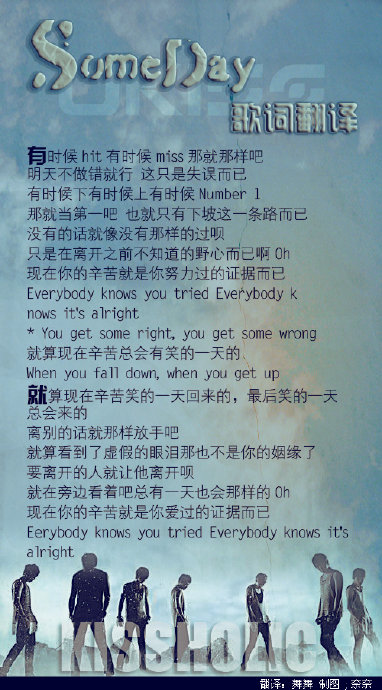 SomeDay
UKISS
歌词翻译
有时候 hit 有时候 miss 那就那样吧
明天不做错就行 这只是失误而已
有时候下有时候上有时候 Number 1
那就当第一吧 也就只有下坡这一条路而已
没有的话就像没有那样的过呗
只是在离开之前不知道的野心而已啊 Oh
现在你的辛苦就是你努力过的证据而已
Everybody knows you tried Everybody k
nows it's alright
* You get some right, you get some wrong
就算现在辛苦总会有笑的一天的
When you fall down, when you get up
就算现在辛苦笑的一天回来的，最后笑的一天
总会来的
离别的话就那样放手吧
就算看到了虚假的眼泪那也不是你的姻缘了
要离开的人就让他离开呗
就在旁边看着吧总有一天也会那样的 Oh
现在你的辛苦就是你爱过的证据而已
Eerybody knows you tried Everybody knows it's
alright
KISSHOLIC
翻译：舞舞 制图：奈奈